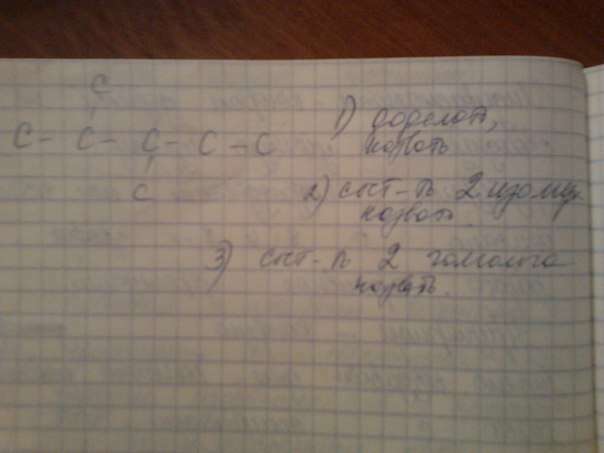 C
C - C - C - C - C
C
1) доделать,
назвать
2) сост-ть 2 изомер.
назвать
3) сост-ть 2 гомолога
назвать.